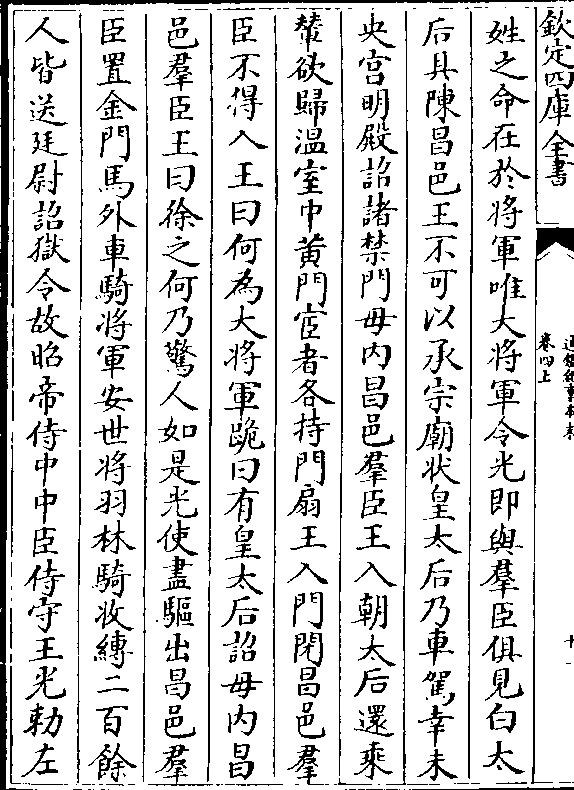 欽定四庫全書
通鑑紀事本末
卷四上
十一
姓之命在於將軍唯大將軍令光即與羣臣俱見白太
后具陳昌邑王不可以承宗廟狀皇太后乃車駕幸未
央宫明殿詔諸禁門毋内昌邑羣臣王入朝太后還乘
輦欲歸溫室中黄門宦者各持門扇王入門閉昌邑羣
臣不得入王曰何為大將軍跪曰有皇太后詔毋内昌
邑羣臣王曰徐之何乃驚人如是光使盡驅出昌邑羣
臣置金門馬外車騎將軍安世將羽林騎收縳二百餘
人皆送廷尉詔獄令故昭帝侍中中臣侍守王光勅左